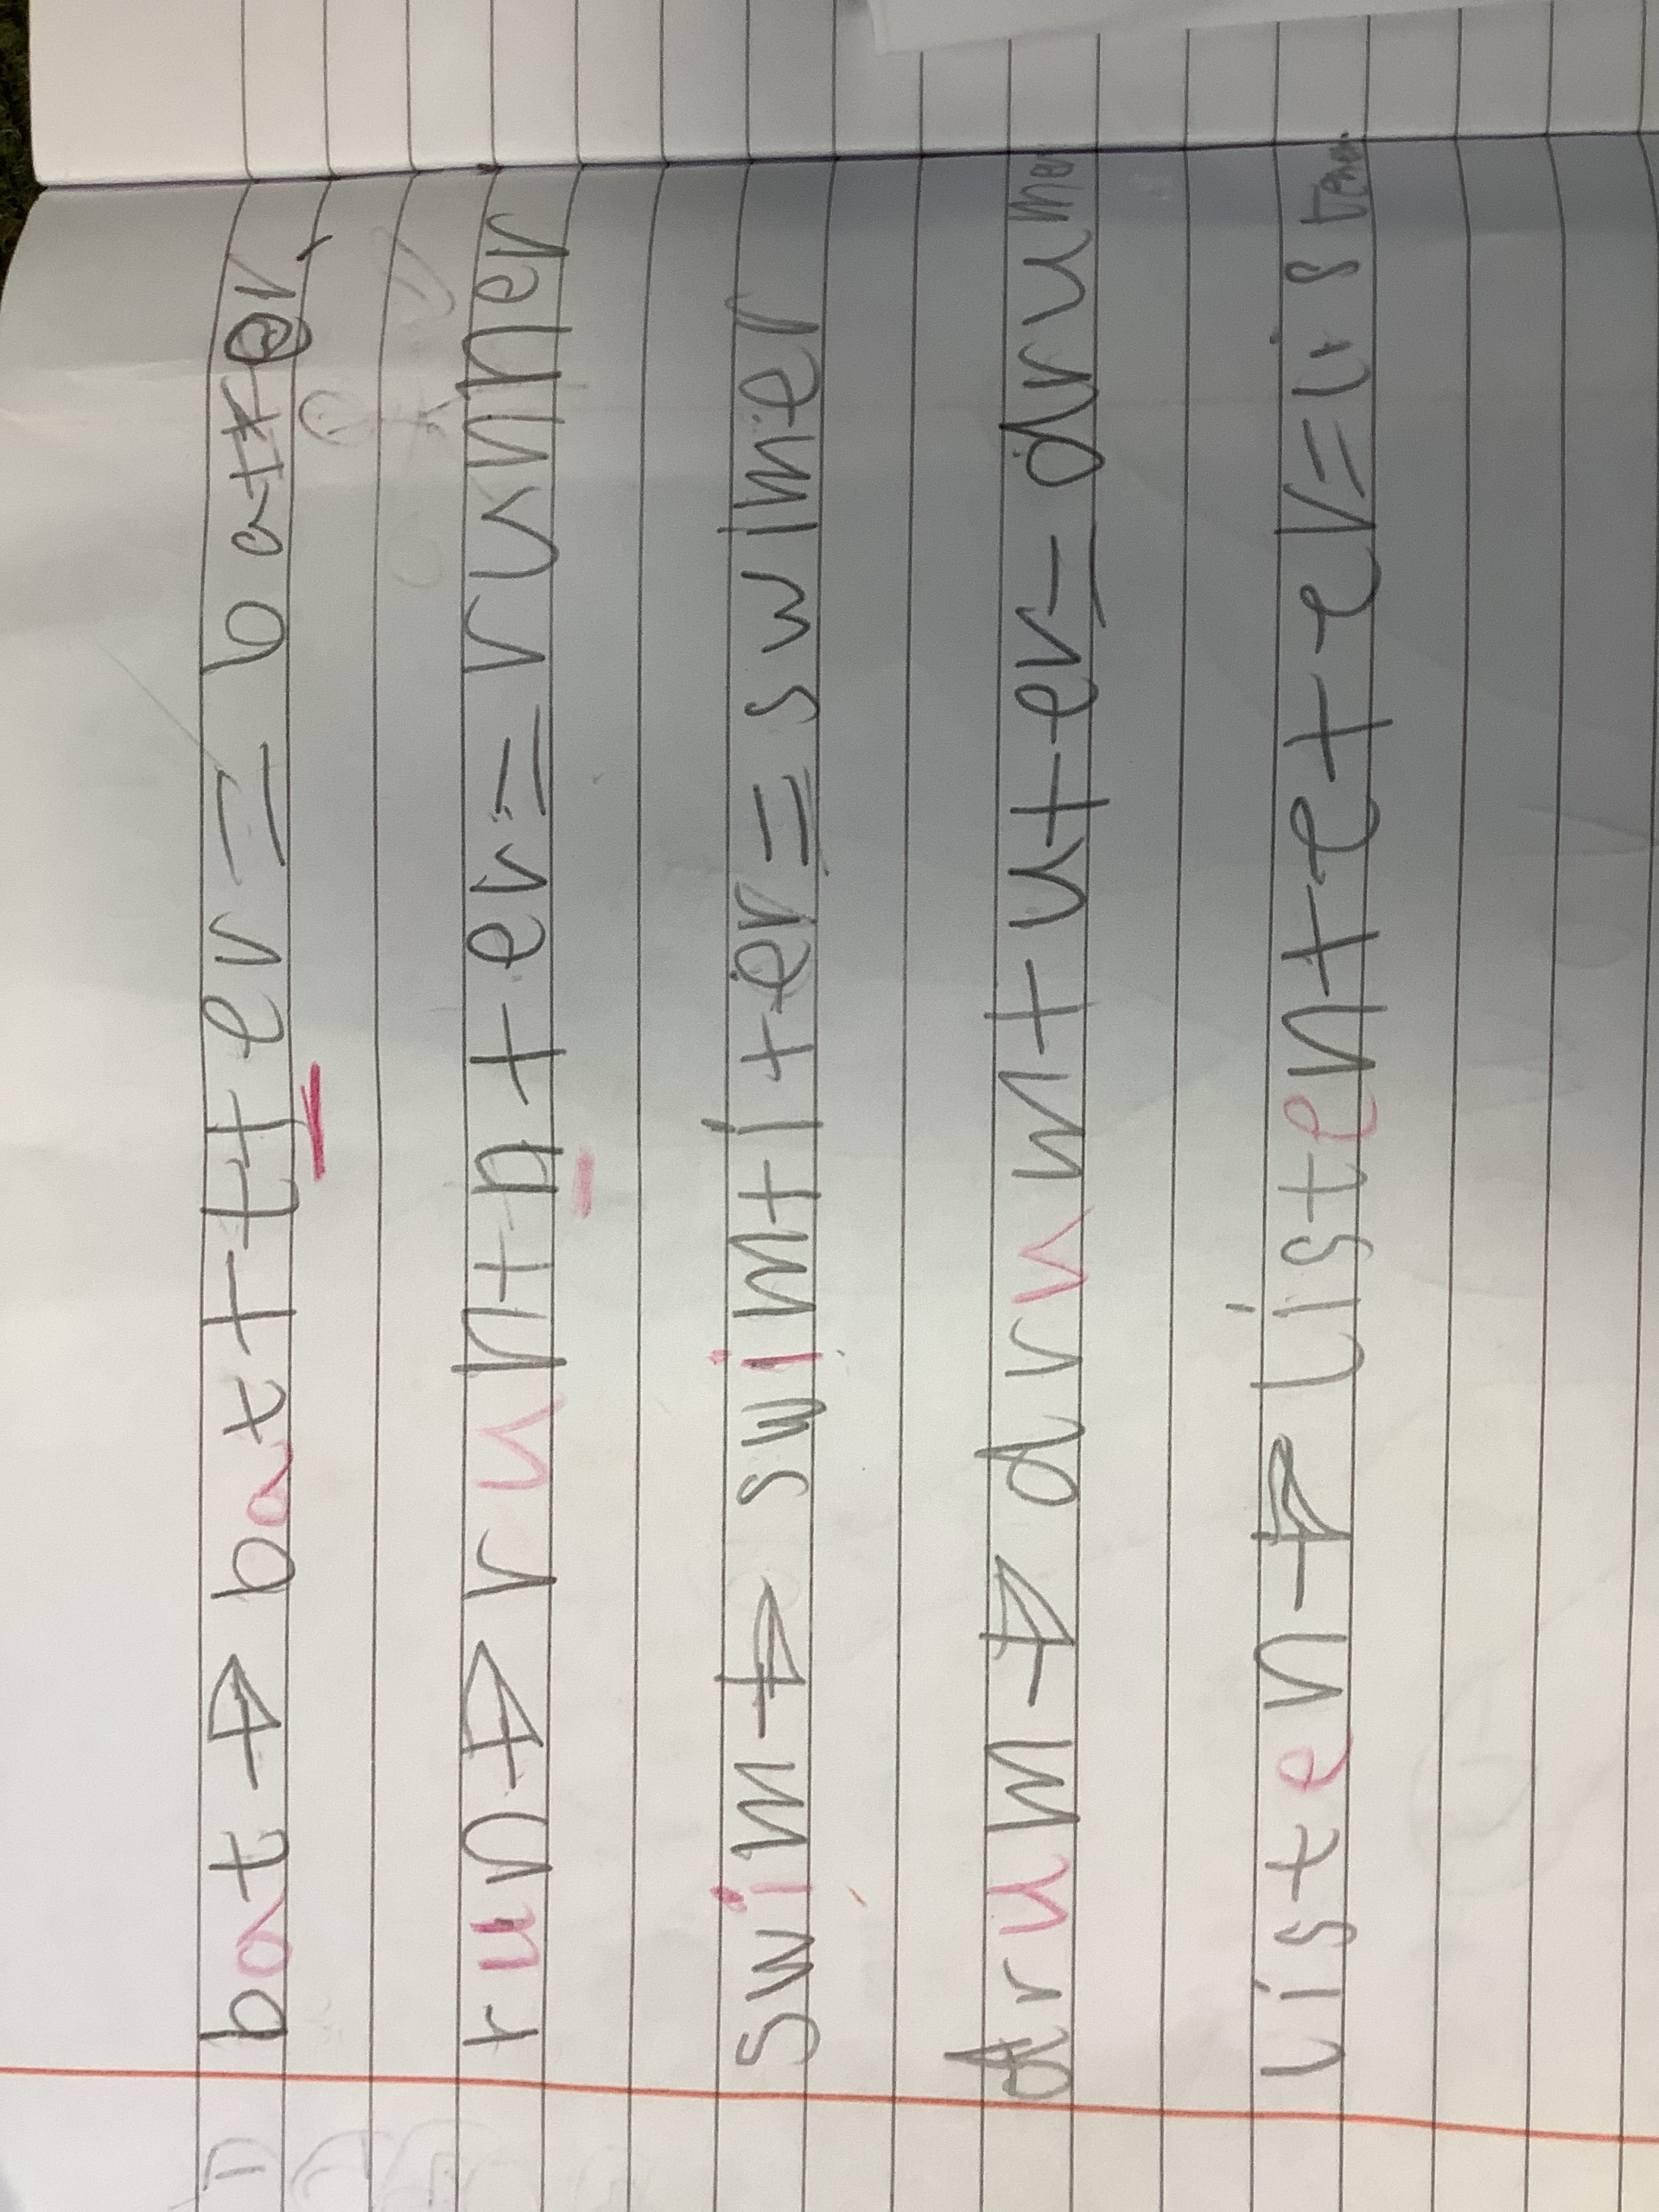 bat → bat + t + er = batter
run → run + n + er = runner
swim → swim + i + er = swimer
drum → drum + u + er = drumer
listen → listen + e + er = listener